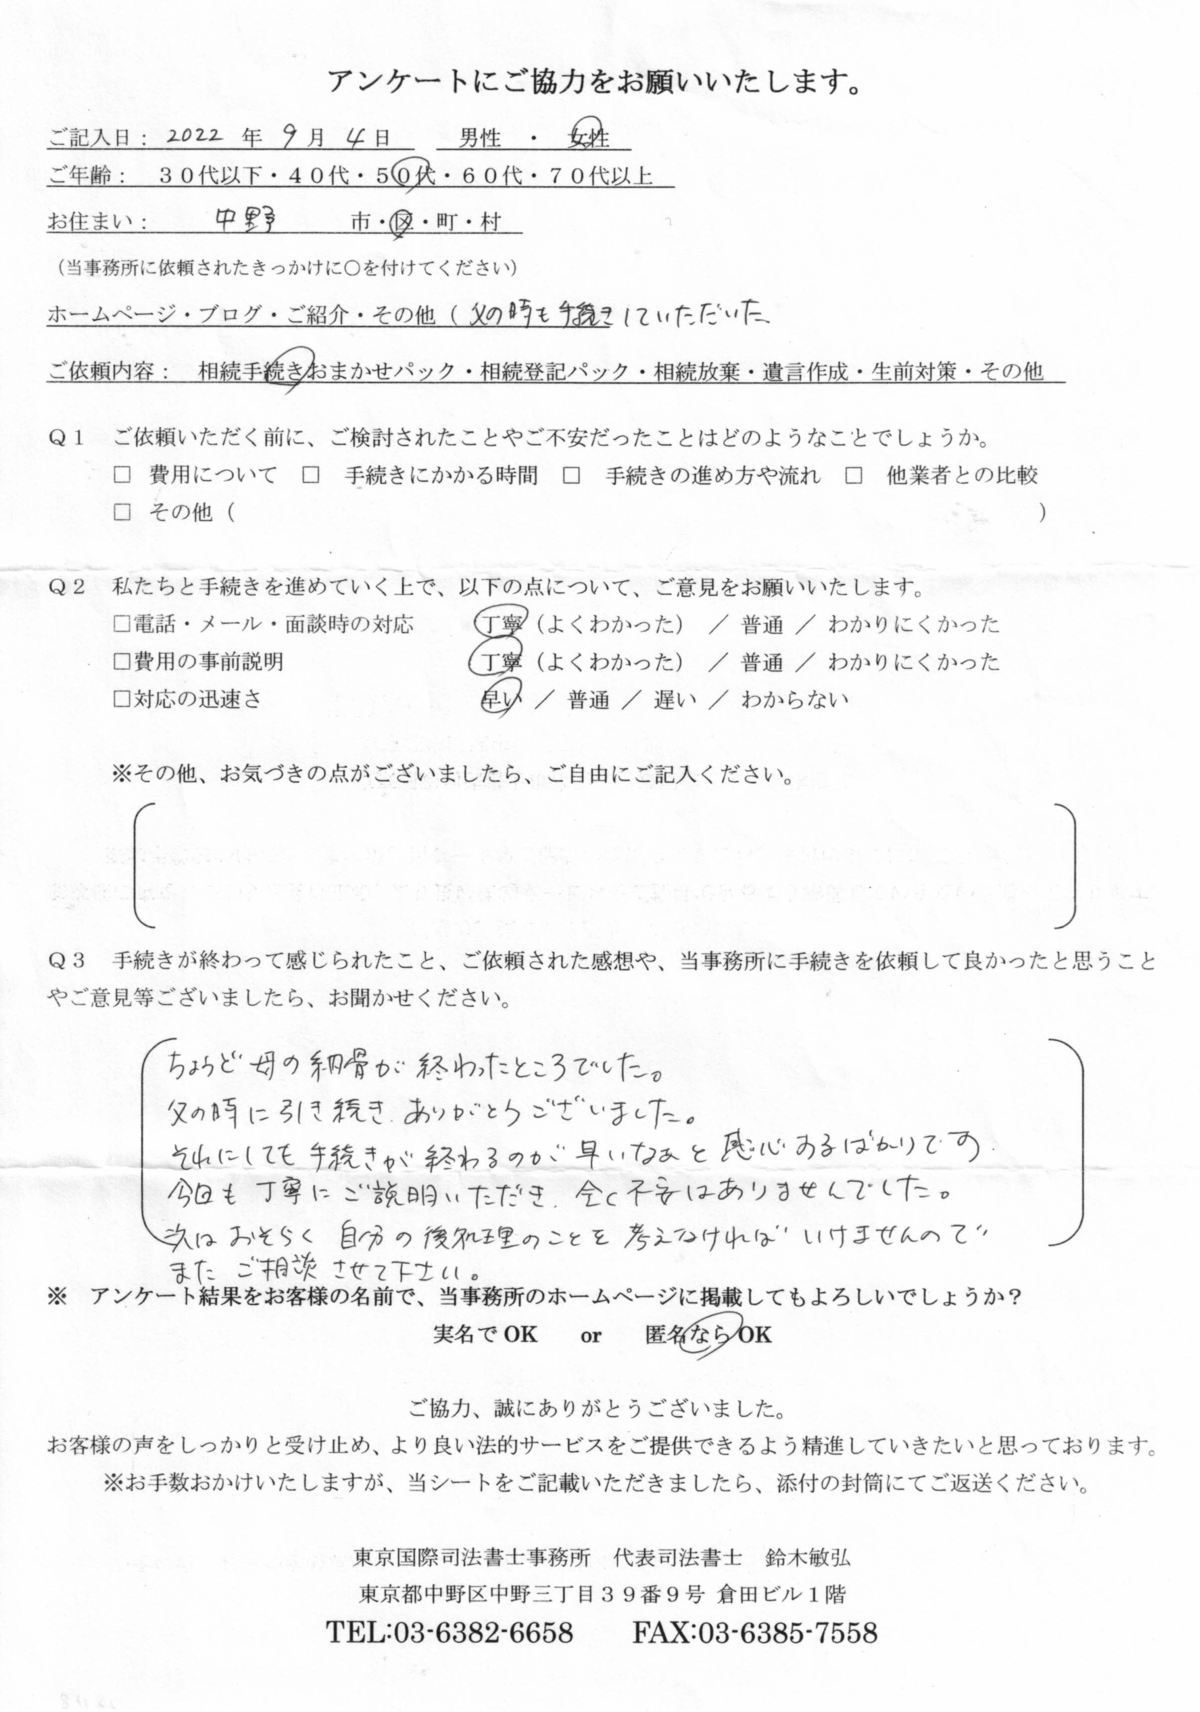 アンケートにご協力をお願いいたします。
ご記入日： 2022 年 9 月 4 日　男性　・　女性
ご年齢：　３０代以下・４０代・５０代・６０代・７０代以上
お住まい：　中野　市・区・町・村
（当事務所に依頼されたきっかけに○を付けてください）
ホームページ・ブログ・ご紹介・その他（ 父の時も手続きしていただいた
ご依頼内容：　相続手続きおまかせパック・相続登記パック・相続放棄・遺言作成・生前対策・その他
Ｑ１　ご依頼いただく前に、ご検討されたことやご不安だったことはどのようなことでしょうか。
□　費用について　□　手続きにかかる時間　□　手続きの進め方や流れ　□　他業者との比較
□　その他（　）
Ｑ２　私たちと手続きを進めていく上で、以下の点について、ご意見をお願いいたします。
□電話・メール・面談時の対応　丁寧（よくわかった）　／　普通　／　わかりにくかった
□費用の事前説明　丁寧（よくわかった）　／　普通　／　わかりにくかった
□対応の迅速さ　早い　／　普通　／　遅い　／　わからない
※その他、お気づきの点がございましたら、ご自由にご記入ください。
Ｑ３　手続きが終わって感じられたこと、ご依頼された感想や、当事務所に手続きを依頼して良かったと思うこと
やご意見等ございましたら、お聞かせください。
ちょうど母の納骨が終わったところでした。
父の時に引き続き、ありがとうございました。
それにしても手続きが終わるのが早いなぁと感心するばかりです
今回も丁寧にご説明いただき、全く不安はありませんでした。
次はおそらく自分の後処理のことを考えなければいけませんので
またご相談させて下さい。
※　アンケート結果をお客様の名前で、当事務所のホームページに掲載してもよろしいでしょうか？
実名で OK　or　匿名なら OK
ご協力、誠にありがとうございました。
お客様の声をしっかりと受け止め、より良い法的サービスをご提供できるよう精進していきたいと思っております。
※お手数おかけいたしますが、当シートをご記載いただきましたら、添付の封筒にてご返送ください。
東京国際司法書士事務所　代表司法書士　鈴木敏弘
東京都中野区中野三丁目３９番９号 倉田ビル１階
TEL:03-6382-6658　FAX:03-6385-7558